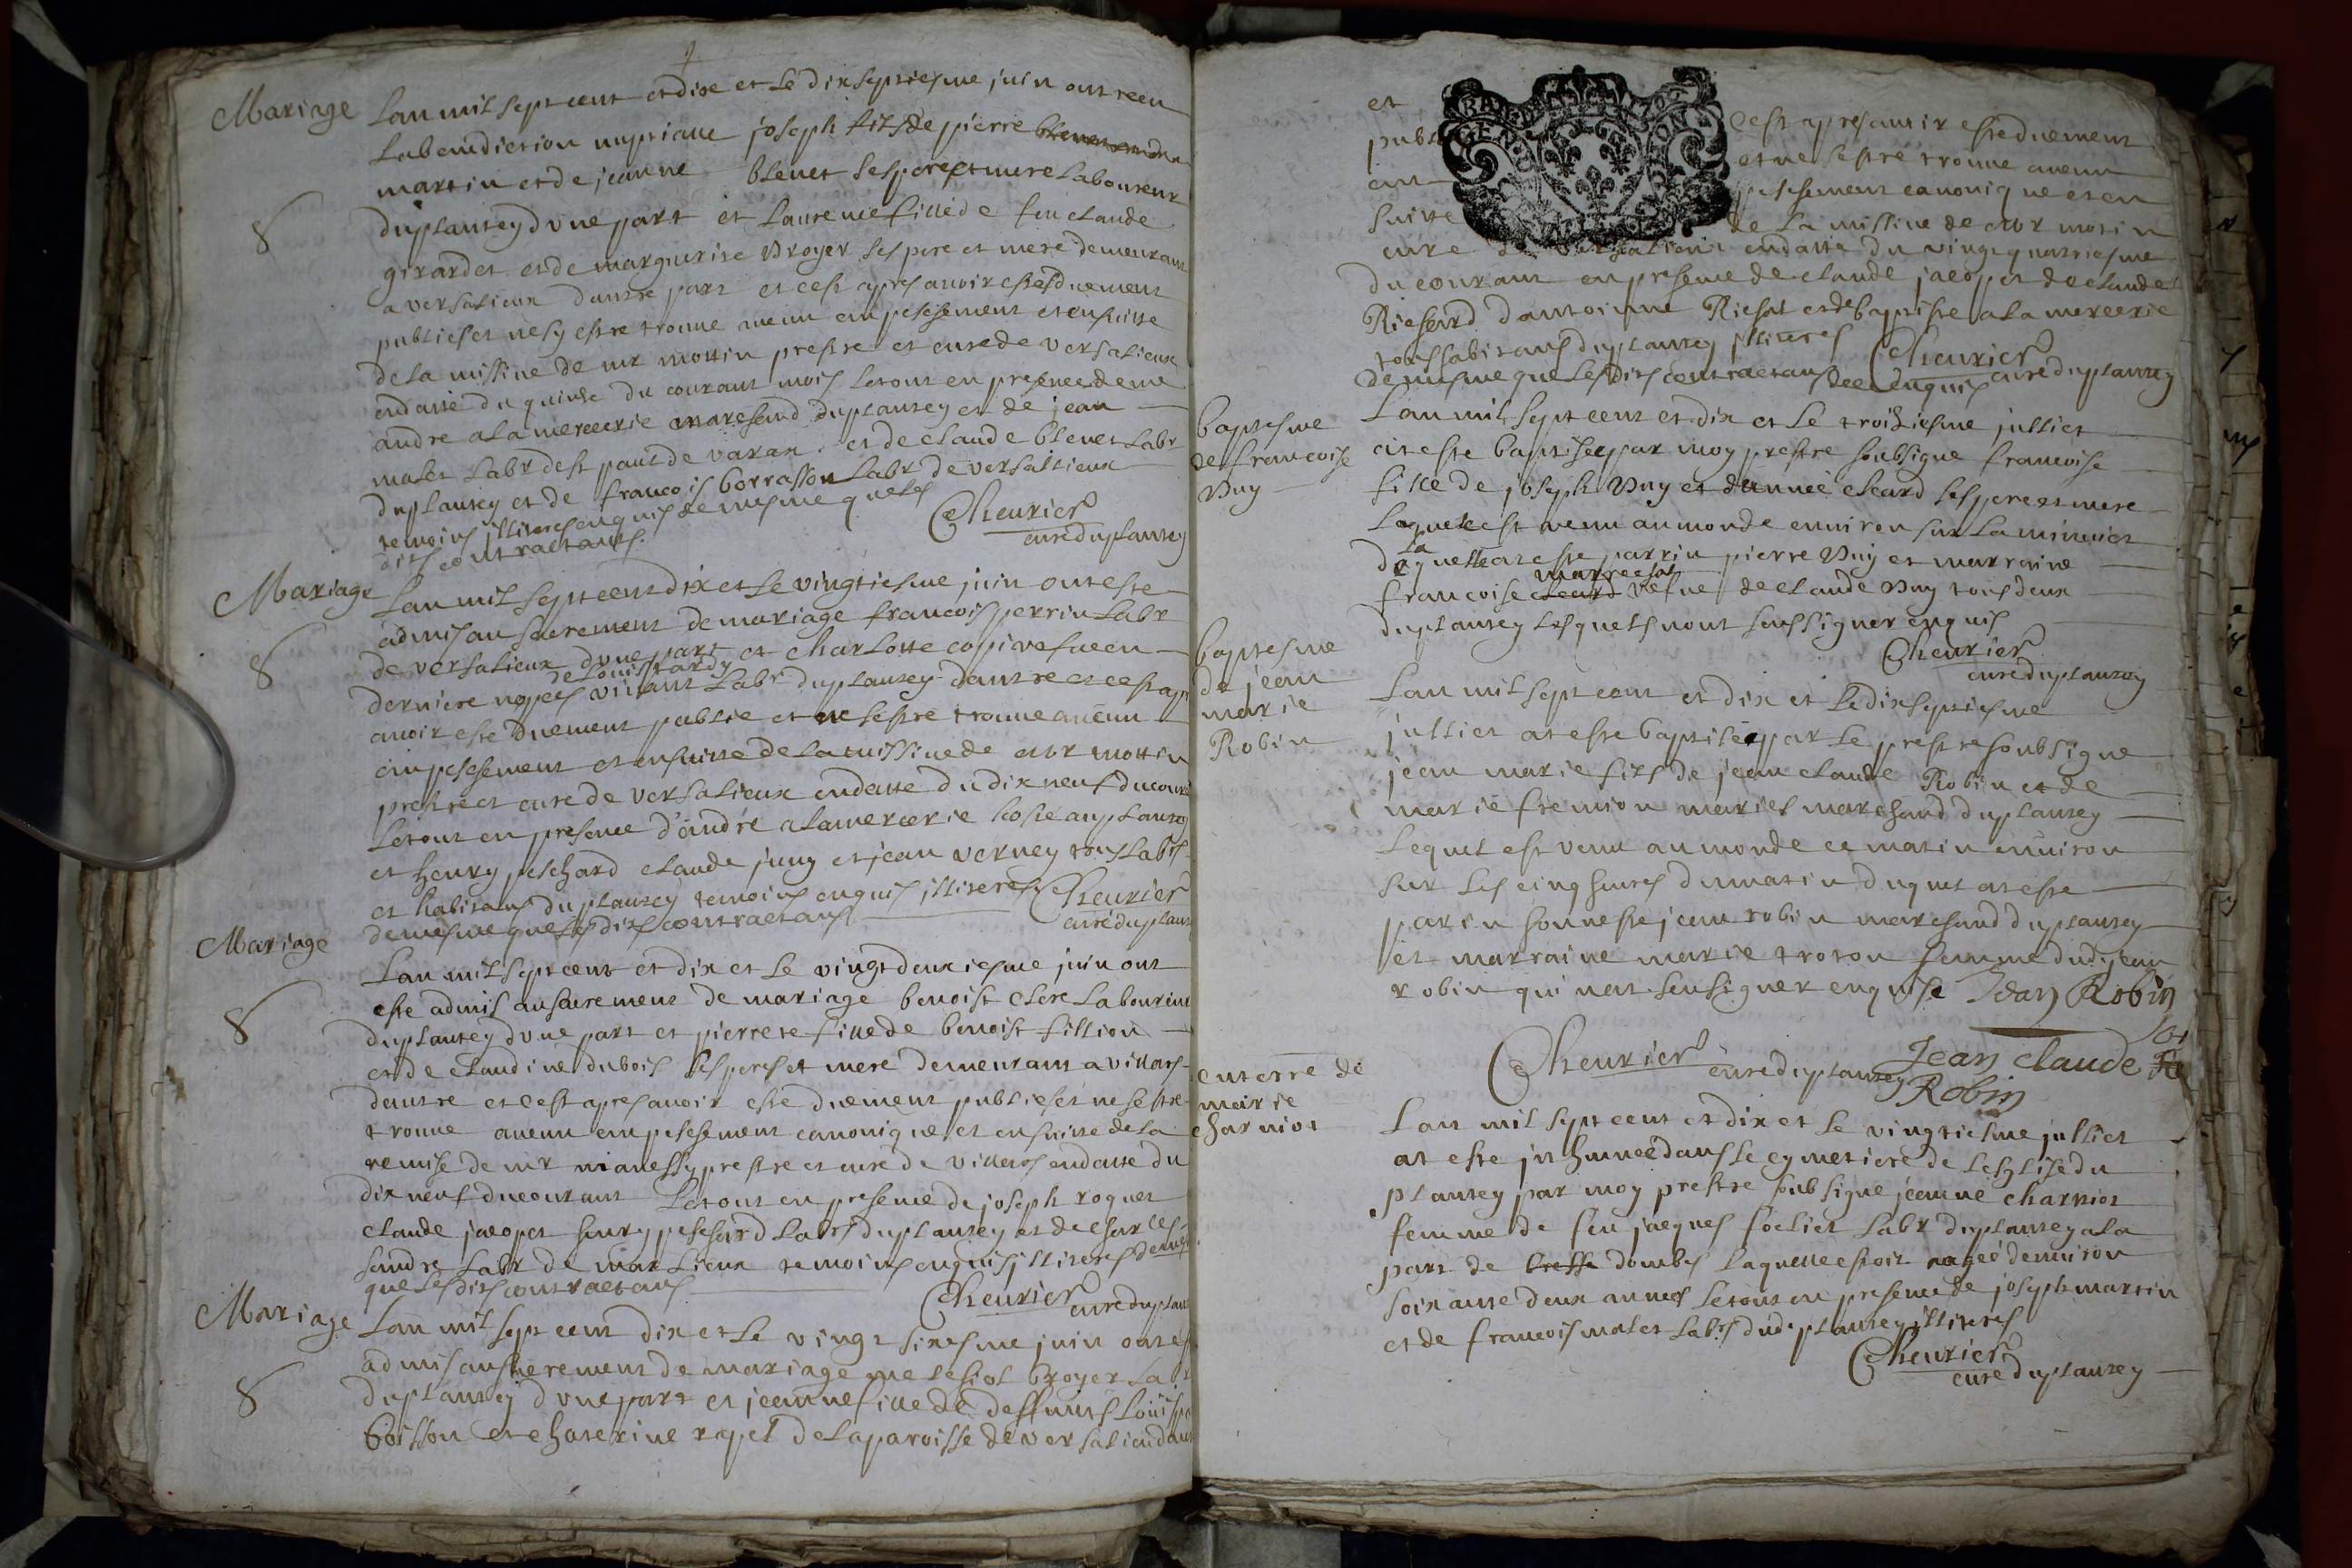 Mariage
Lan mil sept cent et dix et le dix septiesme juin ont receu
la benediction nuptiale joseph fils de pierre
martin et de jeanne blenet ses pere et mere laboureur
du plantey dvne part et laurence fille de feu claude
girardet et de marguerite broyer ses pere et mere demeurant
a versalieux dautre part et cest apres auoir estes duement
publies et ne sy estre trouue aucun empeschement et ensuitte
de la missiue de mr mottin prestre et cure de versalieux
endatte du quinse du courant mois le tout en presence de me
andre alamercerie marchand du plantey et de jean
malet labr de st paul de varax et de claude blenet labr
du plantey et de francois borrasson labr de versalieux
temoins illiteres enquis de mesme que les
dits contractants
Cheurier
cure du plantey
Mariage
Lan mil sept cent dix et le vingtiesme juin ont este
admis au sacrement de mariage francois perrin labr
de versalieux dvne part et charlotte copin vefue en
derniere nopces de louis tardy viuant labr du plantey dautre et cest ap
auoir este duement publie et ne sestre trouue aucun
empeschement et ensuitte de la missiue de mr mottin
prestre et cure de versalieux endatte du dix neuf du cour
le tout en presence d'andre alamercerie hoste au plantey
et henry peschard claude juny et jean verney tous labrs
et habitans du plantey temoins enquis illiteres
de mesme que les dits contractans
Cheurier
cure du plant
Mariage
Lan mil sept cent et dix et le vingt deuxiesme juin ont
este admis au sacrement de mariage benoist clere laboureur
du plantey dvne part et pierrete fille de benoist fillion
et de claudine dubois ses peres et mere demeurant a villars
dautre et cest apres auoir este duement publies et ne sestre
trouue aucun empeschement canonique et ensuitte de la
remise de mr manessy prestre et cure de villars endatte du
dix neuf du courant le tout en presence de joseph roquet
claude jacopet henry peschard labrs du plantey et de charles
sandre labr de marlieux temoins enquis illiteres de mesme
que les dits contractans
Cheurier
cure du plant
Mariage
Lan mil sept cent dix et le vingt sixiesme juin ont es
admis au sacrement de mariage melchiol broyer lab
du plantey dvne part et jeanne fille de deffunts louis
boisson et chaterine rapet de la paroisse de versalieu daut
et
publ
cest apres auoir este duement
et ne sestre trouue aucun
empeschement canonique et en
suitte de la missiue de mr motin
cure de versalieux endatte du vingt quatriesme
du courant en presence de claude jacopet de claude
Richard dantoinne Richat et de baptiste alamercerie
tous habitans du plantey illiteres
de mesme que les dits contractans de ce enquis
Cheurier
cure du plantey
baptesme
de francoise
Puy
Lan mil sept cent et dix et le troiziesme julliet
at este baptisee par moy prestre soubsigne francoise
fille de joseph Puy et dannee cleard ses pere et mere
laquele est venu au monde enuiron sur la minuict
de la quelle at este parrin pierre Puy et marraine
francoise vefue de claude Puy tous deux
du plantey lesquels nont sceu signer enquis
Cheurier
cure du plantey
baptesme
de jean
marie
Robin
Lan mil sept cent et dix et le dix septiesme
julliet at este baptise par le prestre soubsigne
jean marie fils de jean claude Robin et de
marie fremion maries marchand du plantey
lequel est venu au monde ce matin enuiron
sur les cinq heures du matin duquel at este
parin honneste jean robin marchand du plantey
et marraine marie troton femme dud jean
robin qui nat sceu signer enquise
Jean Robin
Cheurier
cure du plantey
Jean Claude
Robin
enterre de
marie
charniot
Lan mil sept cent et dix et le vingtiesme julliet
at este inhumee dans le cymetiere de leglise du
plantey par moy prestre soubsigne jeanne charniot
femme de feu jacques foctiet labr du plantey a la
part de bresse dombes laquelle estoit agee denuiron
soixante deux annees le tout en presence de joseph martin
et de francois malet labrs dud plantey illiteres
Cheurier
cure du plantey